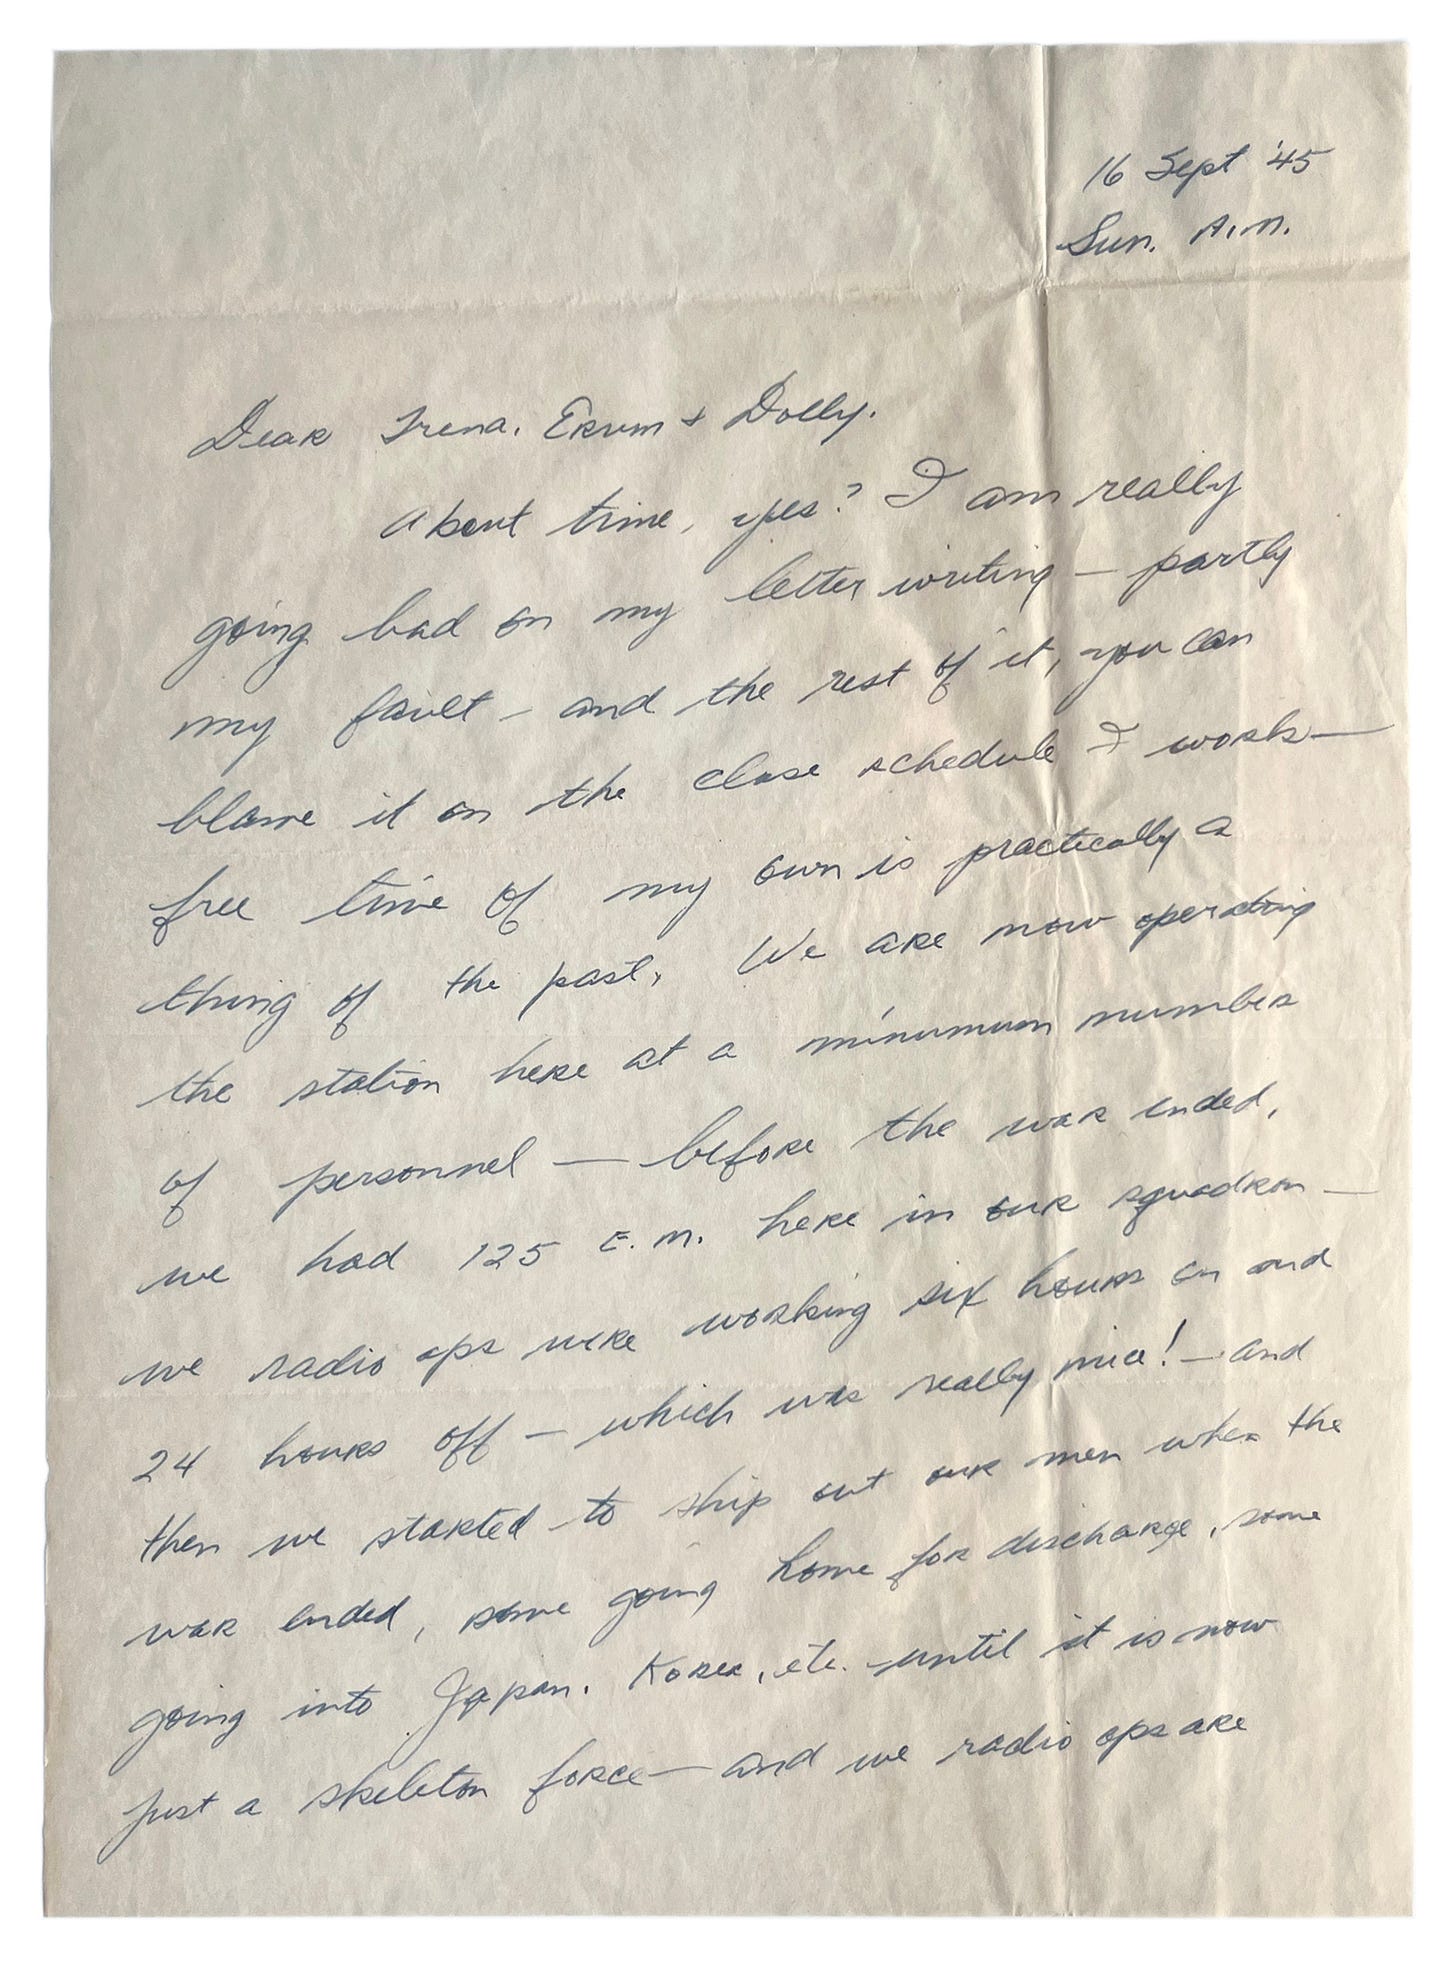 16 Sept '45
Sun. A.M.
Dear Irena, Ervin + Dolly.
About time, yes? I am really
going bad on my letter writing — partly
my fault — and the rest of it, you can
blame it on the close schedule I work —
free time of my own is practically a
thing of the past. We are now operating
the station here at a minumum number
of personnel — before the war ended,
we had 125 E.M. here in our squadron —
we radio ops were working six hours on and
24 hours off — which was really nice! — and
then we started to ship out our men when the
war ended, some going home for discharge, some
going into Japan, Korea, etc. until it is now
just a skeleton force — and we radio ops are